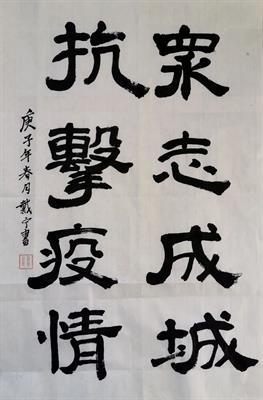 眾志成城
抗擊疫情
庚子年春月戴宁書